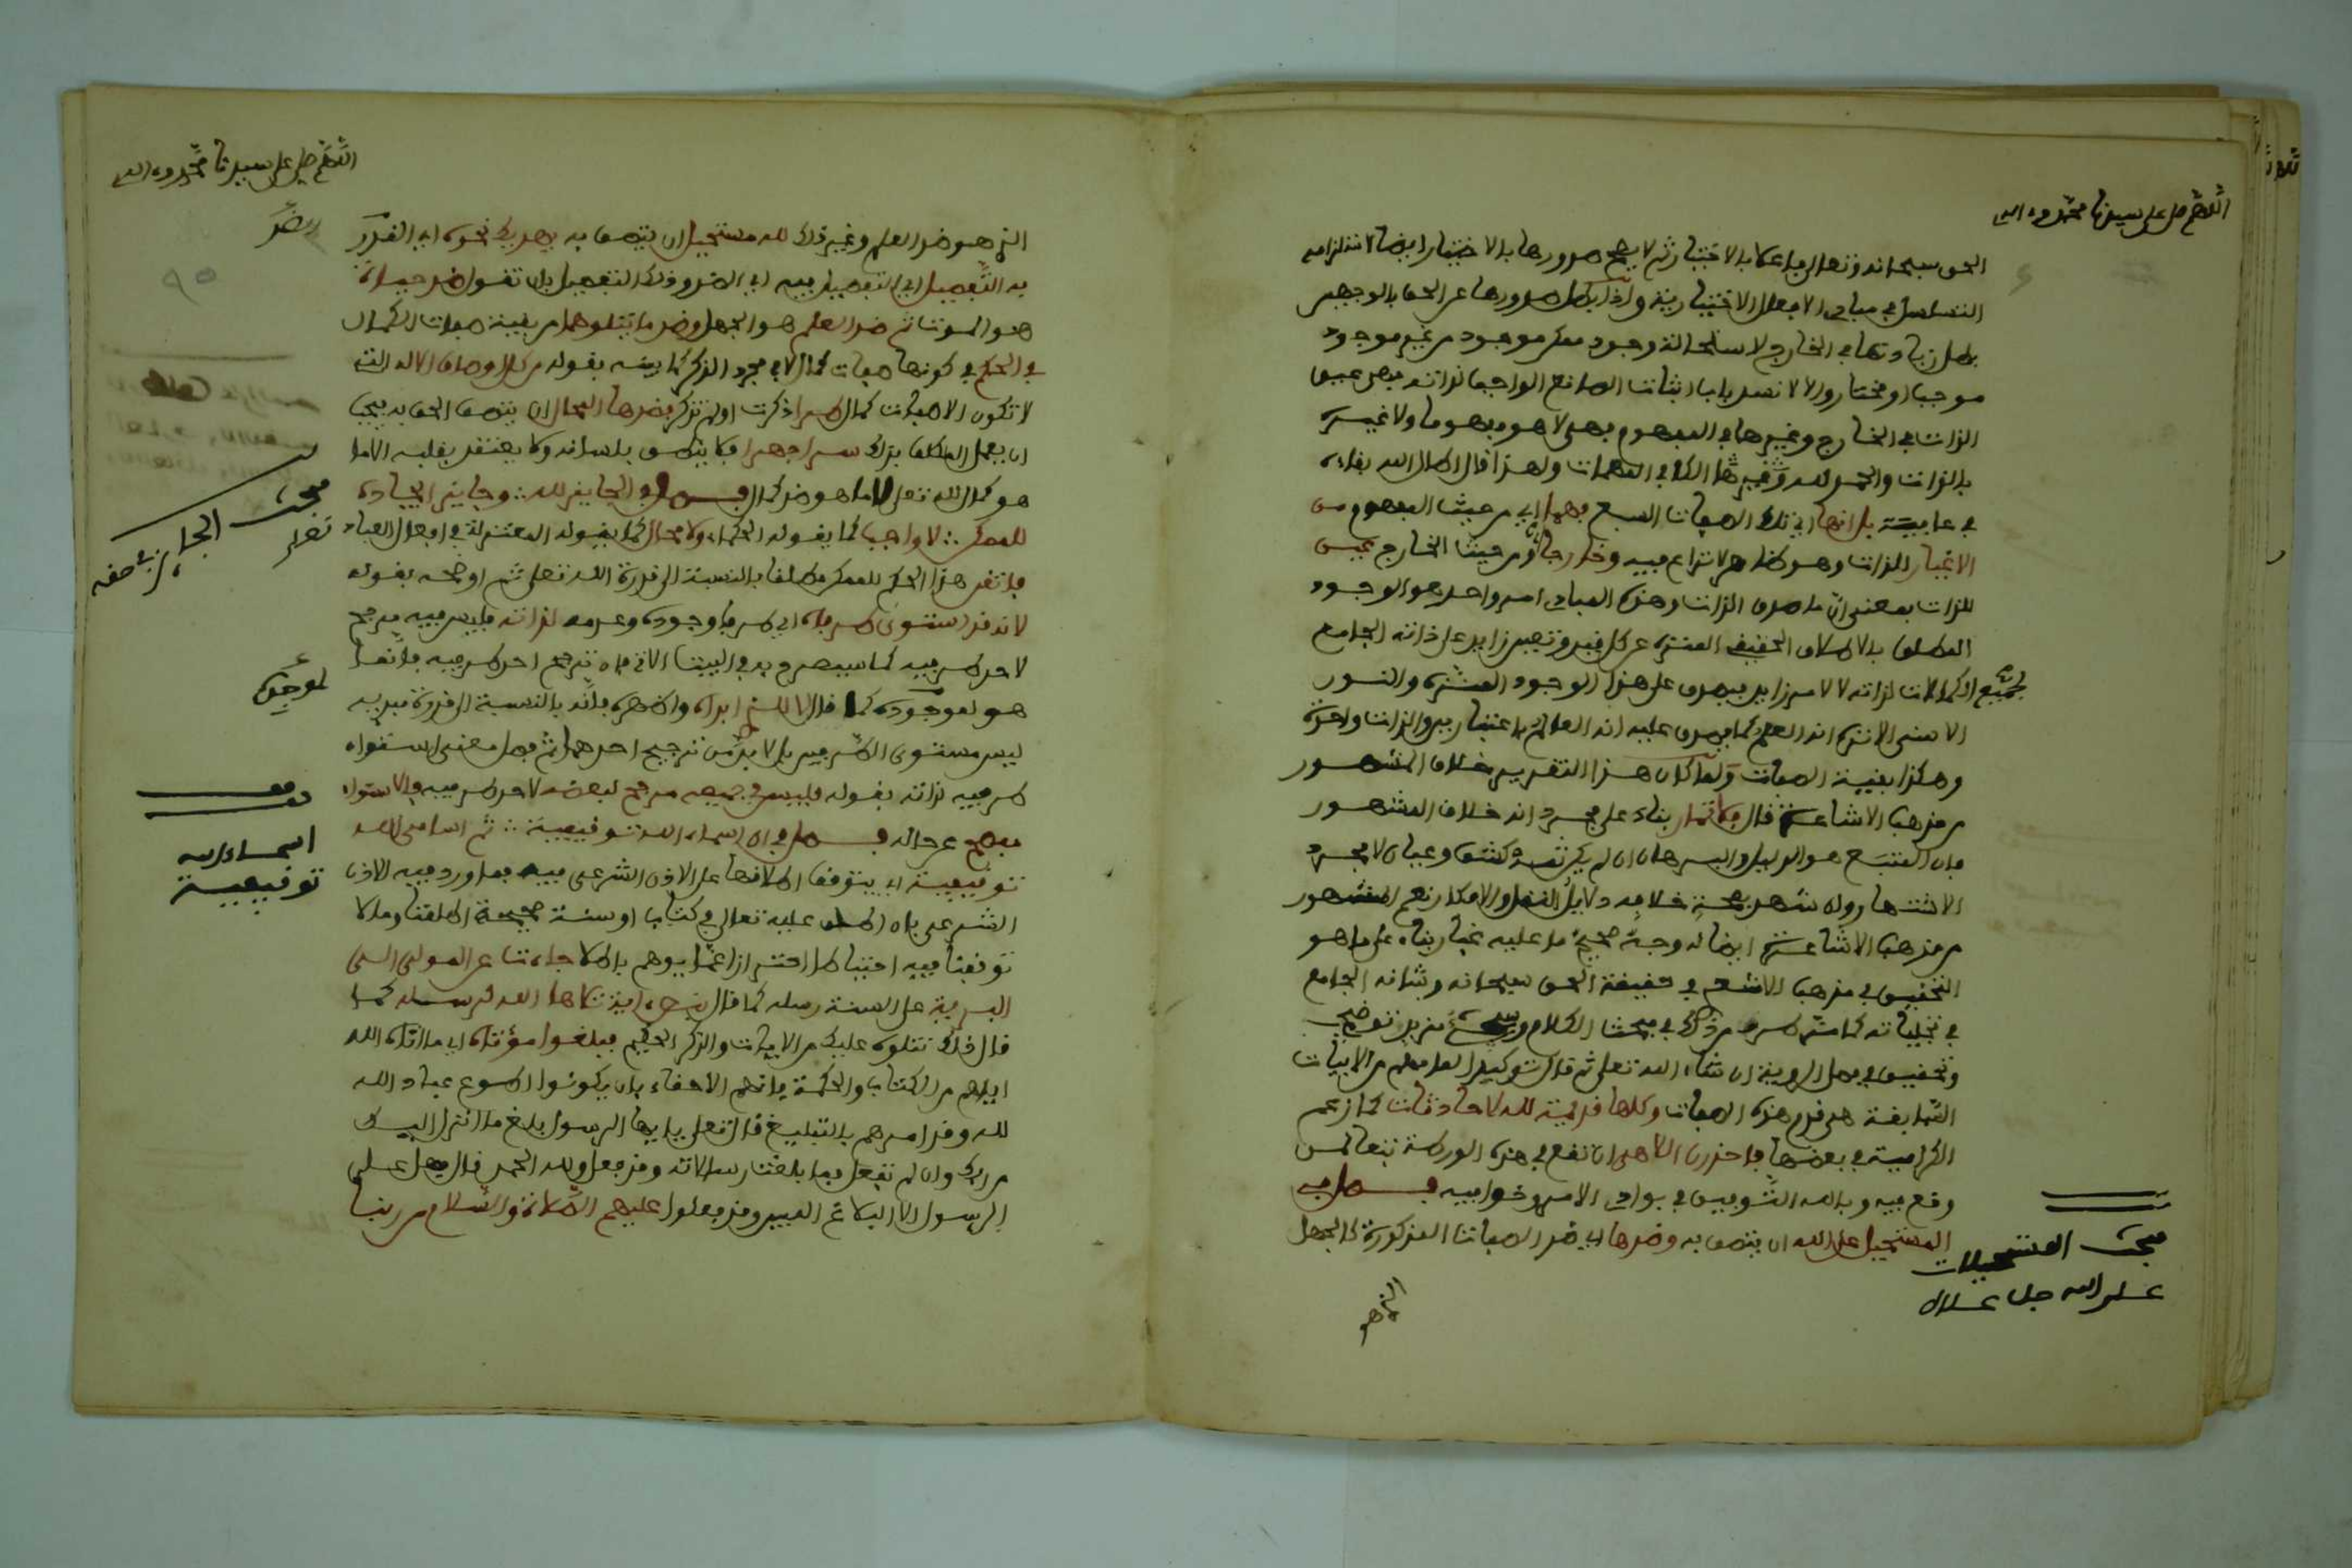 اللهم صل على سيدنا محمد وءاله
الحق سبحانه وتعالى فاعلا بالاختيار ثم لا يصح صدورها بالاختيار ايضا لاستلزامه
التسلسل في مبادى الافعال الاختيارية واذا بطل صدورها عن الحق بالوجهين
بطل زيادتها في الخارج لاستحالة وجود ممكن موجود من غير موجود
موجبا او مختارا والا لانسد باب اثبات الصانع الواجب لذاته فهى عين
الذات في الخارج وغيرها في المفهوم فهى لا هو مفهوما ولا غيره
بالذات والحمد لله
في عاقبته بل انها اي تلك الصفات السبع فهما اي من حيث المفهوم من
الاغيار للذات وهو ظاهر لا نزاع فيه وخارجا اي ومن حيث الخارج عين
للذات بمعنى ان ما صدق الذات وهذه المبادى امر واحد هو الوجود
المطلق بالاطلاق الحقيقى المنزه عن كل قيد وتعين زايد على ذاته الجامع
لجميع الكمالات لذاته لا لامر زايد فيصدق على هذا الوجود المنزه والنور
الاسنى الانزه انه العلم كما يصدق عليه انه العالم باعتبارين والذات واحدة
وهكذا بقية الصفات ولما كان هذا التقرير خلاف المشهور
من مذهب الاشاعرة قال فلا تمار بناء على مجرد انه خلاف المشهور
فان المتبع هو الدليل والبرهان ان لم يكن ثمة كشف وعيان لا مجرد
الاشتهار وان شهد بصحة خلافه دلايل النقل والافكار نعم المشهور
من مذهب الاشاعرة ايضا له وجه صحيح ما عليه غبار بناء على ما هو
التحقيق في مذهب الاشعري في حقيقة الحق سبحانه وشانه الجامع
في تجلياته كما مر طرف من ذلك في مبحث الكلام وسيجئ مزيد توضيح
وتحقيق في فصل الروية ان شاء الله تعالى ثم قال توكيدا لما فهم من الابيات
السابقة هى قدر هذه الصفات وكلها قديمة لله لا حادثات كما زعم
الكرامية في بعضها فاحذرن الاهى ان تقع في هذه الورطة تبعا لمن
وقع فيه وبالله التوفيق في بوادى الامر وخوافيه فصل في
المستحيل على الله ان يتصف به وضدها اي ضد الصفات المذكورة كالجهل
مبحث المستحيلات
على الله جل علاه
الذي هو
اللهم صل على سيدنا محمد وءاله
الذي هو ضد العلم وغير ذلك لله مستحيل ان يتصف به يهديك نحوه اي القدر
به التفصيل اي التفصيل فيه اي القدر وذلك التفصيل بان تقول ضد حياة
هو الموت ثم ضد العلم هو الجهل وضد ما يتلوهما من بقية صفات الكمال
في الحكم في كونها صفات كمال لا في مجرد الذكر كما بينه بقوله من كل اوصاف الاله التى
لا تكون الا صفات كمال طرا ذكرت او لم تذكر بضدها المحال ان يتصف الحق به يجب
ان يعمل المكلف بذلك سرا جهرا فلا ينطق بلسانه ولا يعتقد بقلبه الا ما
هو كمال لله تعلى لا ما هو ضد كمال فصل في الجايز لله وجايز ايجاده
للممكن لا واجب كما يقوله الحكماء ولا محال كما يقوله المعتزلة في افعال العباد
فاثبت هذا الحكم للممكن مطلقا بالنسبة الى قدرة الله تعلى ثم اوضحه بقوله
لانه قد استوى طرفاه اي طرفا وجوده وعدمه لذاته فليس فيه مرجح
لاحد طرفيه كما سيصرح به في البيت الاتى فان ترجح احد طرفيه فانما
هو لموجده كما قال لا للشئ ابداه واظهره فانه بالنسبة الى قدرة مبديه
ليس مستوى الطرفين بل لا بد من ترجيح احدهما ثم فصل معنى استواء
طرفيه لذاته بقوله فليس في جميعه مرجح لبعضه لاحد طرفيه والاستواء
فصل في ان اسماء الله توقيفية ثم اسامى الله
توقيفية اي يتوقف اطلاقها على الاذن الشرعى فيه فما ورد فيه الاذن
الشرعى بان اطلق عليه تعالى في كتاب او سنة صحيحة اطلقنا وما لا
توقفنا فيه احتياطا احترازا عما يوهم باطلا جاءت عن المولى الى
البرية على السنة رسله كما قال
قال ذلك نتلوه عليك من الايات والذكر الحكيم فبلغوا مؤتاه اي ما اتاه الله
اياهم من الكتاب والحكمة فانهم الاحقاء بان يكونوا اطوع عباد الله
لله وقد امرهم بالتبليغ قال تعلى يايها الرسول بلغ ما انزل اليك
من ربك وان لم تفعل فما بلغت رسالاته وقد فعل ولله الحمد قال فهل على
الرسول الا البلاغ المبين وقد فعلوا عليهم الصلاة والسلام من ربنا
مبحث الجايز في حقه
تعلى
لموجده
اسماء الله
توقيفية
٩٥